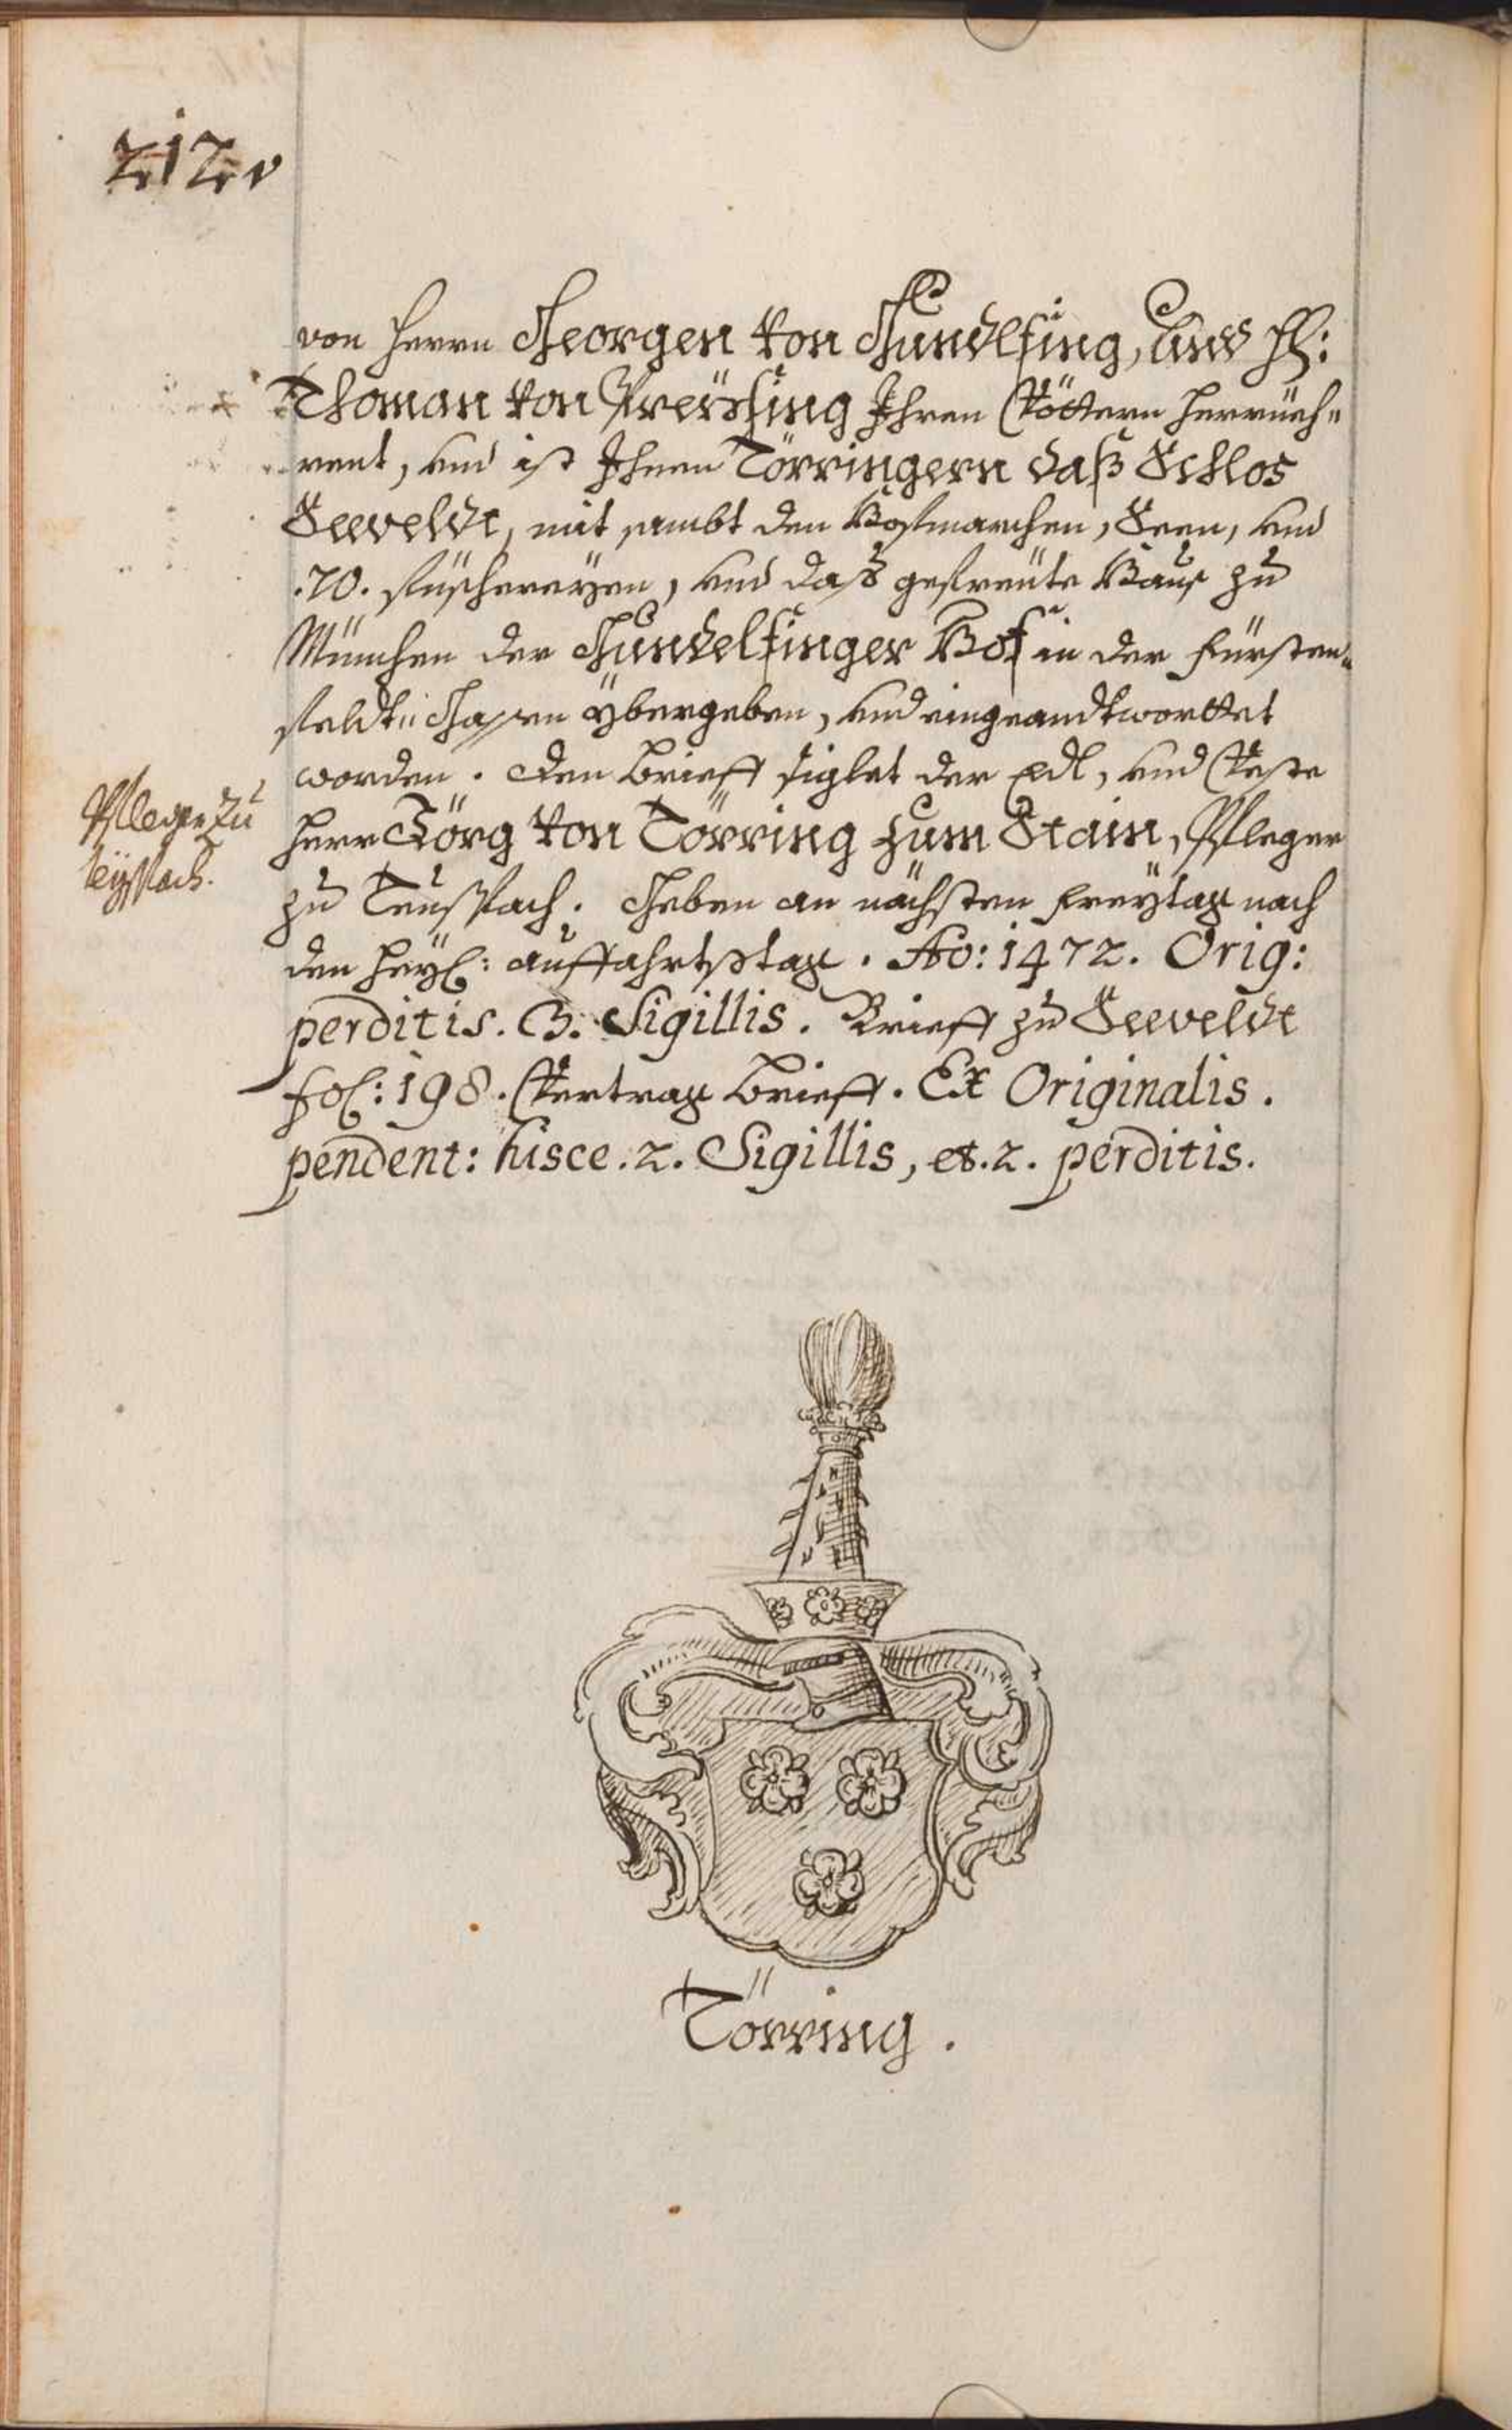 212v
von Herrn Georgen von Gundlfing, und H:
Thoman von Preysing Ihren Vöttern herrüeh„
rent, und ist Ihnen Törringern daß Schlos
Seeveldt, mit sambt den Hofmarchen, Seen, und
.70. füschereyen, und daß gefreüte Haus zu
München der Gundelfinger Hof in der Fürsten„
feldt„ Gassen ybergeben, und eingeandtworttet
worden. Den Brieff siglet der Edl, und Veste
Herr Jörg von Törring zum Stain, Pfleger
zu Teuspach. Geben an nächsten Freytag nach
den Heyl: auffahrtstag. Ao: 1472. Orig:
perditis. 3. Sigillis. Brieff zu Seeveldt
fol: 198. Vertrag Brieff. Ex Originalis.
pendent: hisce. 2. Sigillis, et. 2. perditis.
Pfleger zu
teyspach.
Törring.